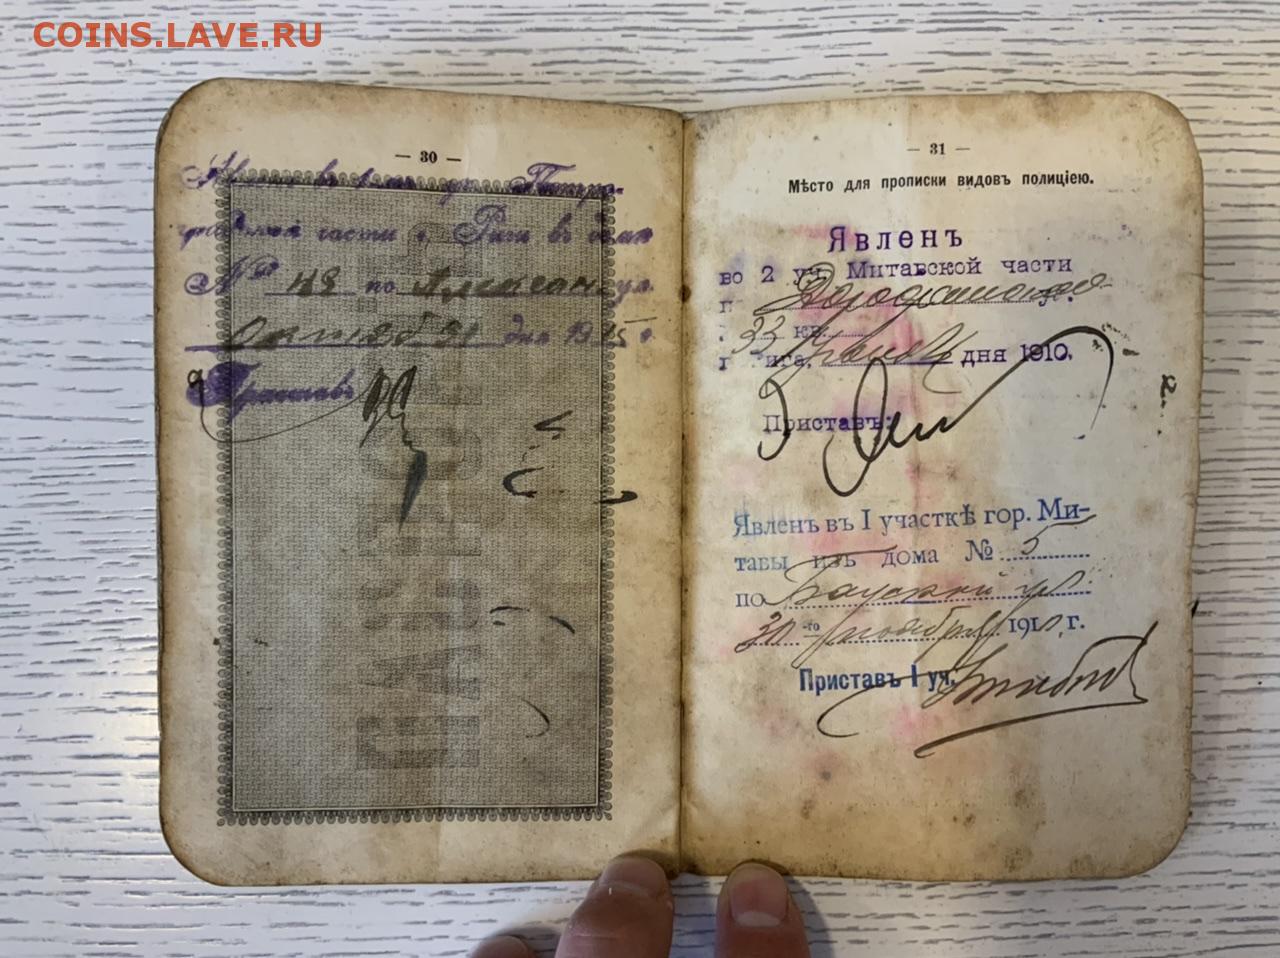 COINS.LAVE.RU
— 30 —
Явленъ въ
части г. Риги въ домѣ
№ 48 по Алексан. ул.
Октяб 31 дня 1915 г.
Приставъ
— 31 —
Мѣсто для прописки видовъ полиціею.
Явленъ
во 2 уч. Митавской части
г
33 кв.
г Рига, дня 1910.
Приставъ:
Явленъ въ I участкѣ гор. Ми-
тавы изъ дома № 5
по Бауской ул.
30-го ноября 1910 г.
Приставъ I уч.